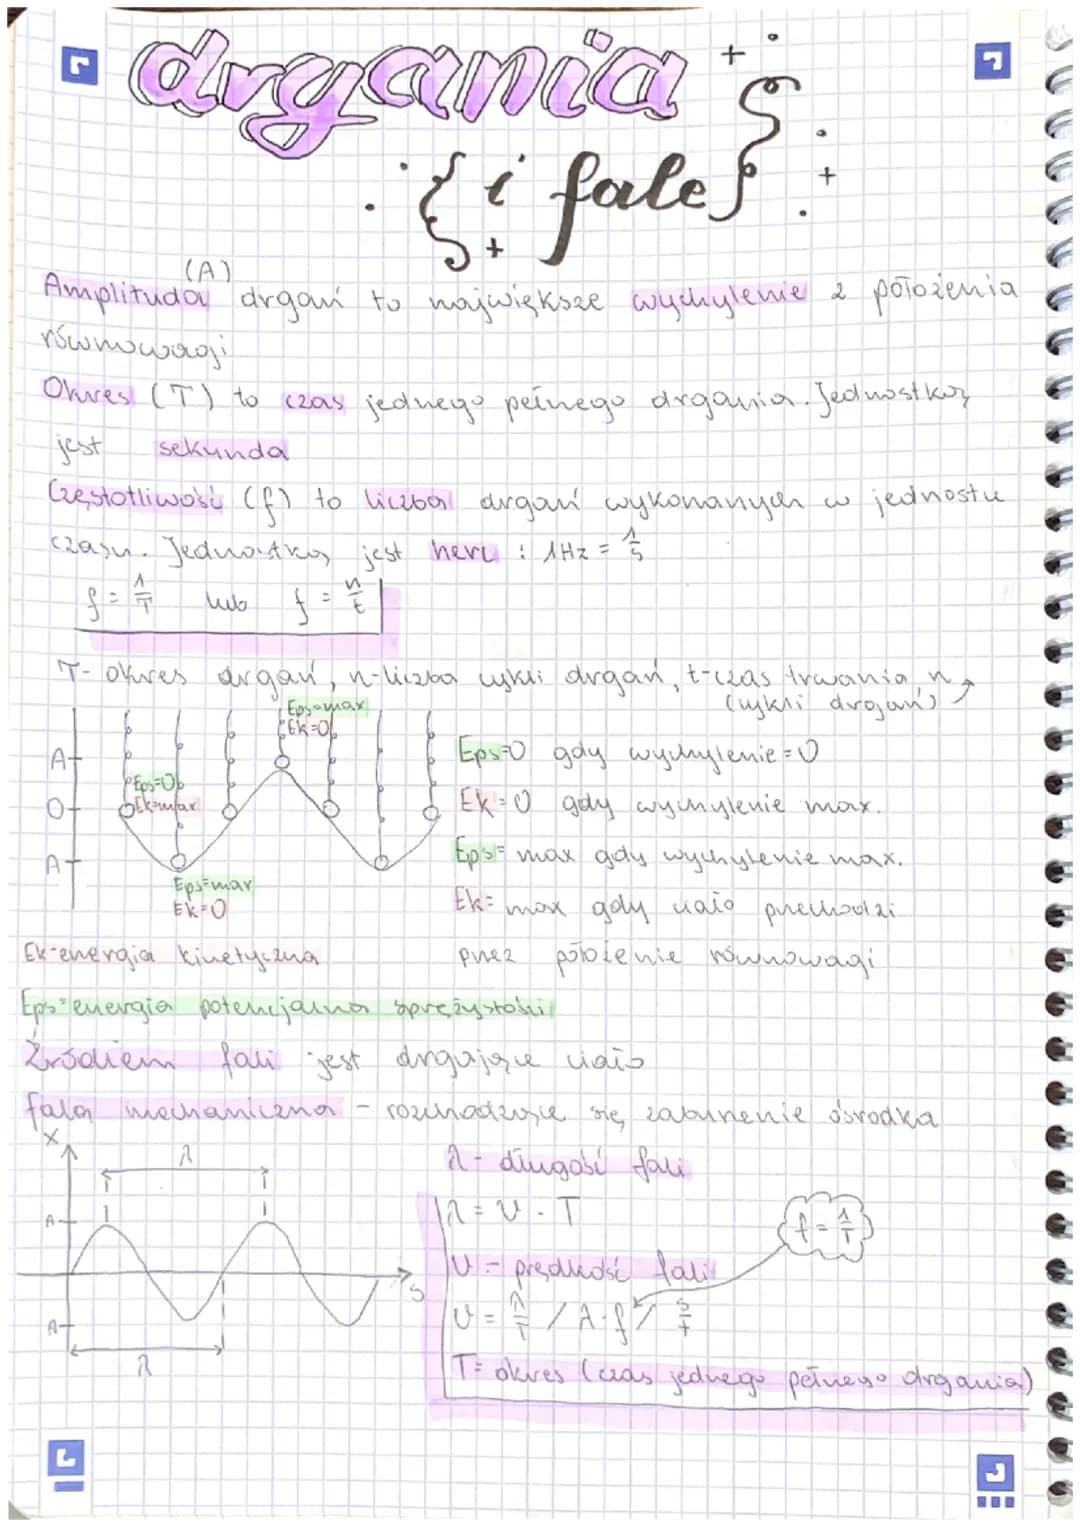 drgania
{ i fale }
(A)
Amplituda drgań to największe wychylenie z położenia
równowagi
Okres (T) to czas jednego pełnego drgania. Jednostką
jest sekunda
Częstotliwość (f) to liczba drgań wykonanych w jednostu
czasu. Jednostką jest herc : 1Hz = 1/s
f = 1/T lub f = n/t
T- okres drgań, n-liczba cykli drgań, t-czas trwania n
(cykli drgań)
Eps=max
Ek=0
A
Eps=0
Ek=max
0
A
Eps=max
Ek=0
Eps=0 gdy wychylenie=0
Ek=0 gdy wychylenie max.
Eps= max gdy wychylenie max.
Ek= max gdy ciało przechodzi
przez położenie równowagi
Ek-energia kinetyczna
Eps=energia potencjalna sprężystości
Źródłem fali jest drgające ciało
fala mechaniczna - rozchodzące się zaburzenie ośrodka
X
λ
A
A
λ
s
λ - długość fali
λ = v · T
f = 1/T
v - prędkość fali
v = λ/T / λ·f / s/t
T= okres (czas jednego pełnego drgania)